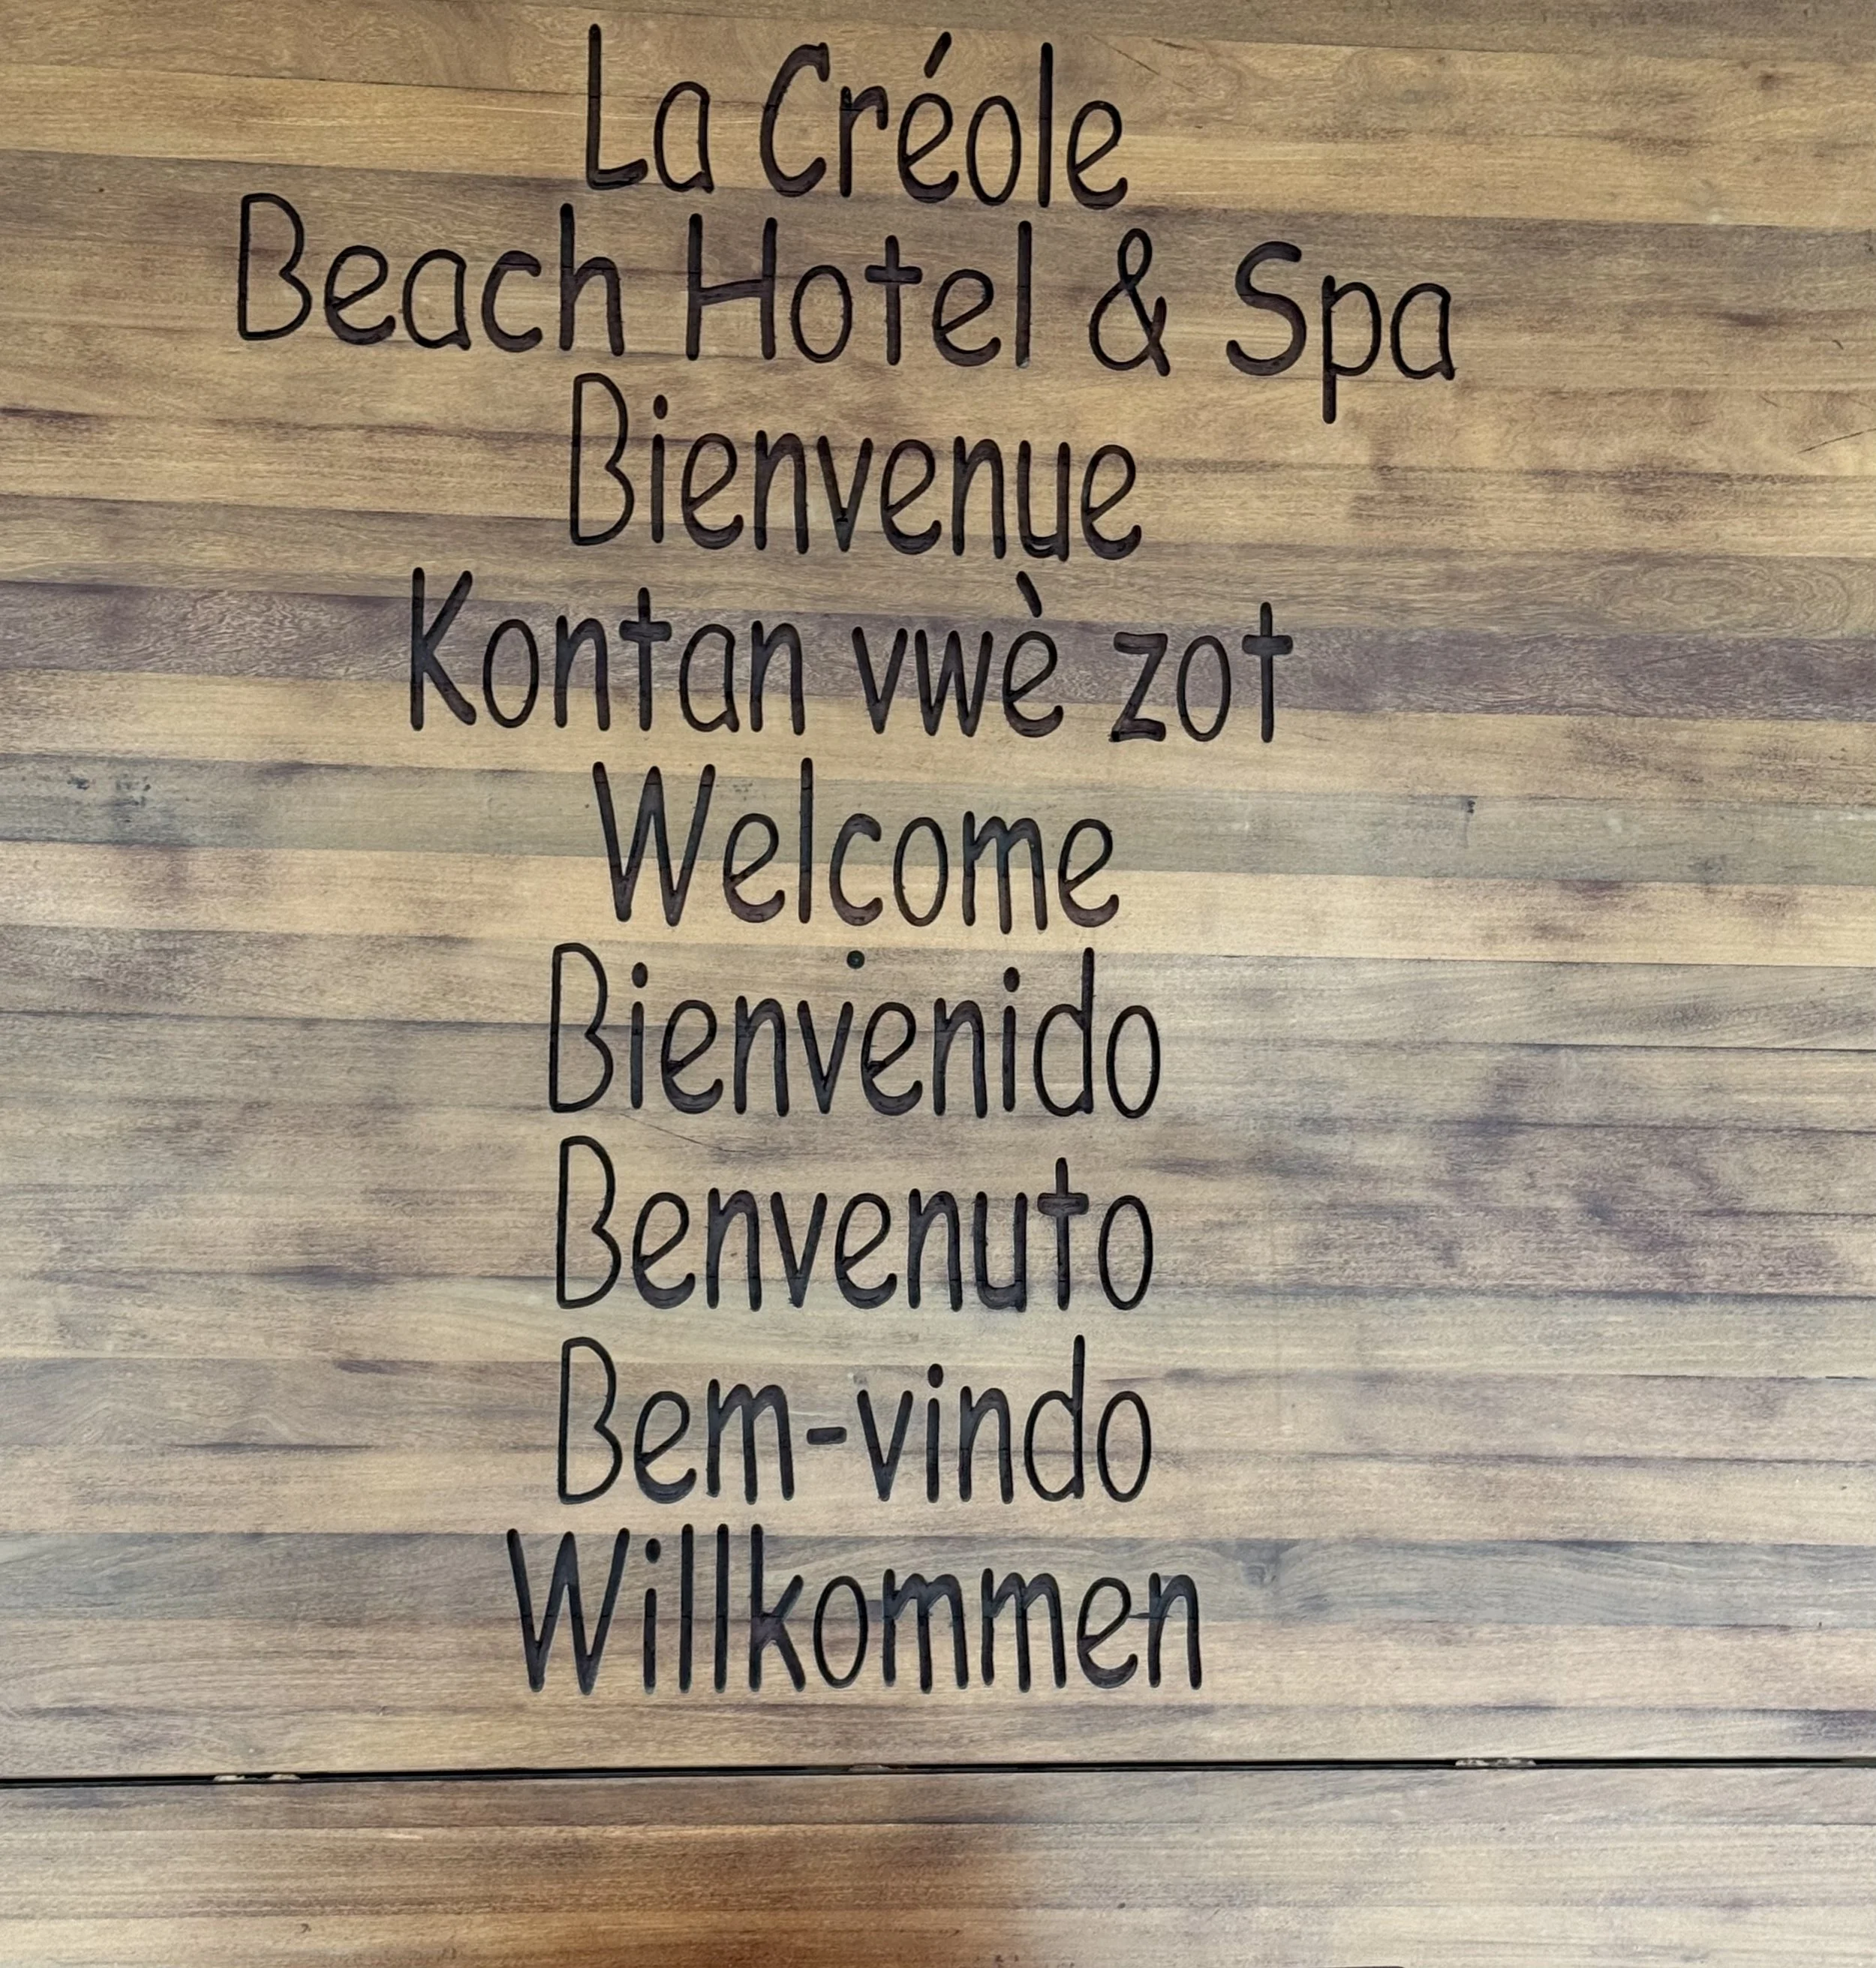 La Créole
Beach Hotel & Spa
Bienvenue
Kontan vwè zot
Welcome
Bienvenido
Benvenuto
Bem-vindo
Willkommen